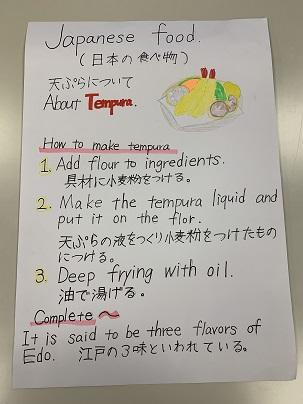 Japanese food.
(日本の食べ物)
天ぷらについて
About Tempura.
How to make tempura
1. Add flour to ingredients.
具材に小麦粉をつける。
2. Make the tempura liquid and
put it on the flor.
天ぷらの液をつくり小麦粉をつけたもの
につける。
3. Deep frying with oil.
油で湯げる。
Complete ~
It is said to be three flavors of
Edo. 江戸の3味といわれている。